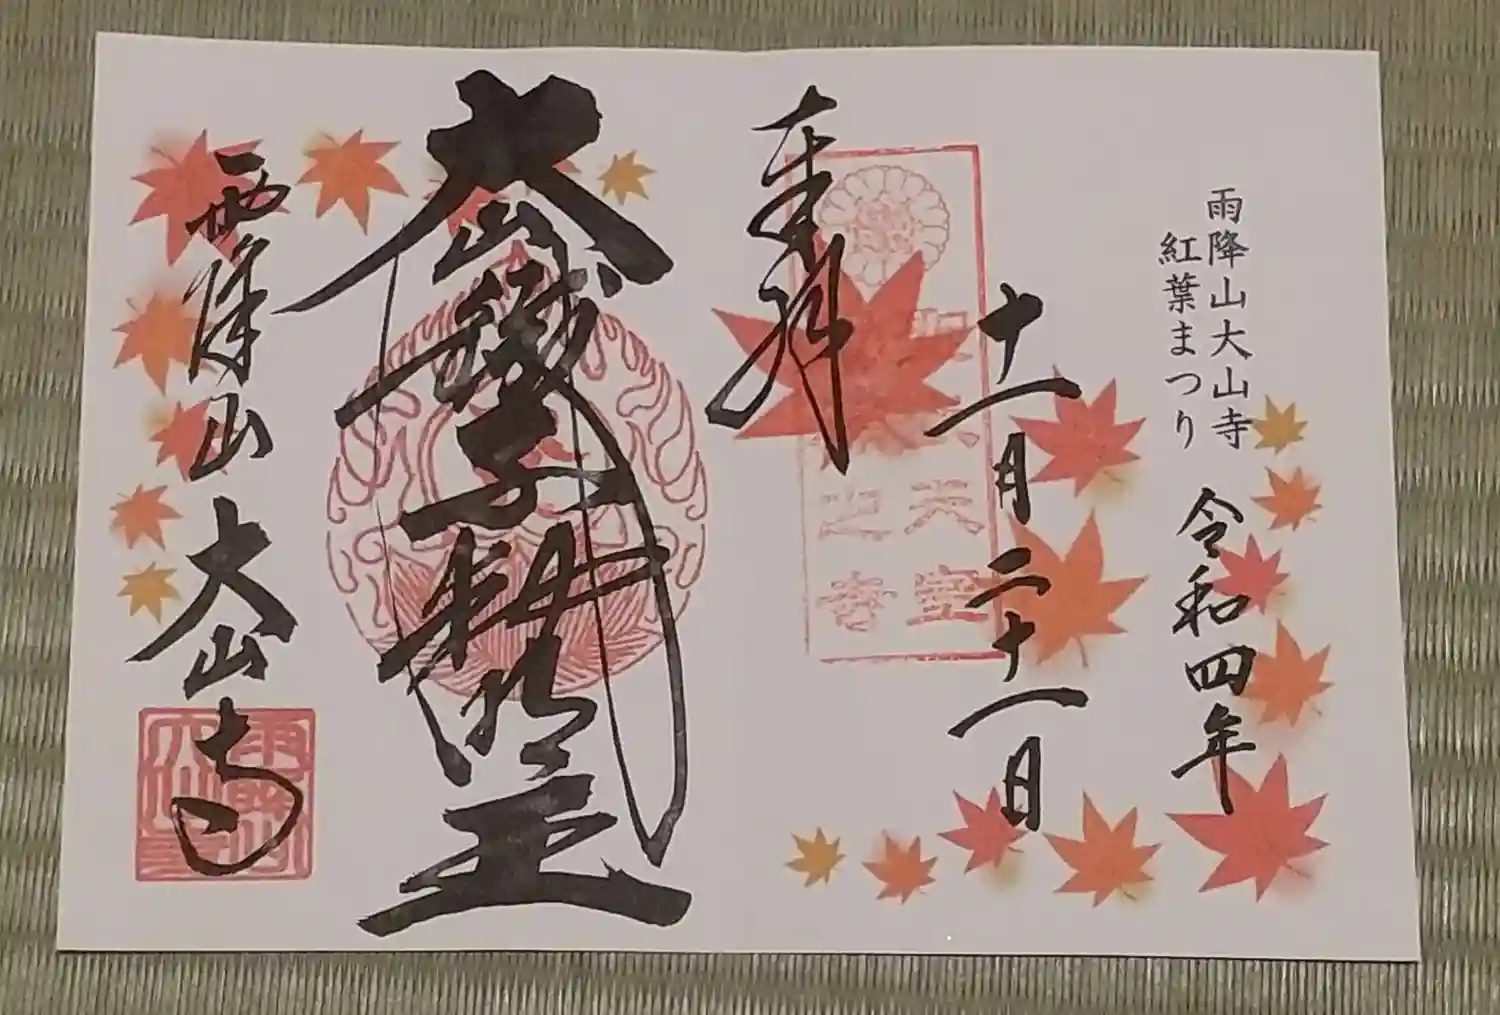 雨降山大山寺
紅葉まつり
令和四年
十一月二十一日
奉拝
大山鐵不動明王
雨降山 大山寺